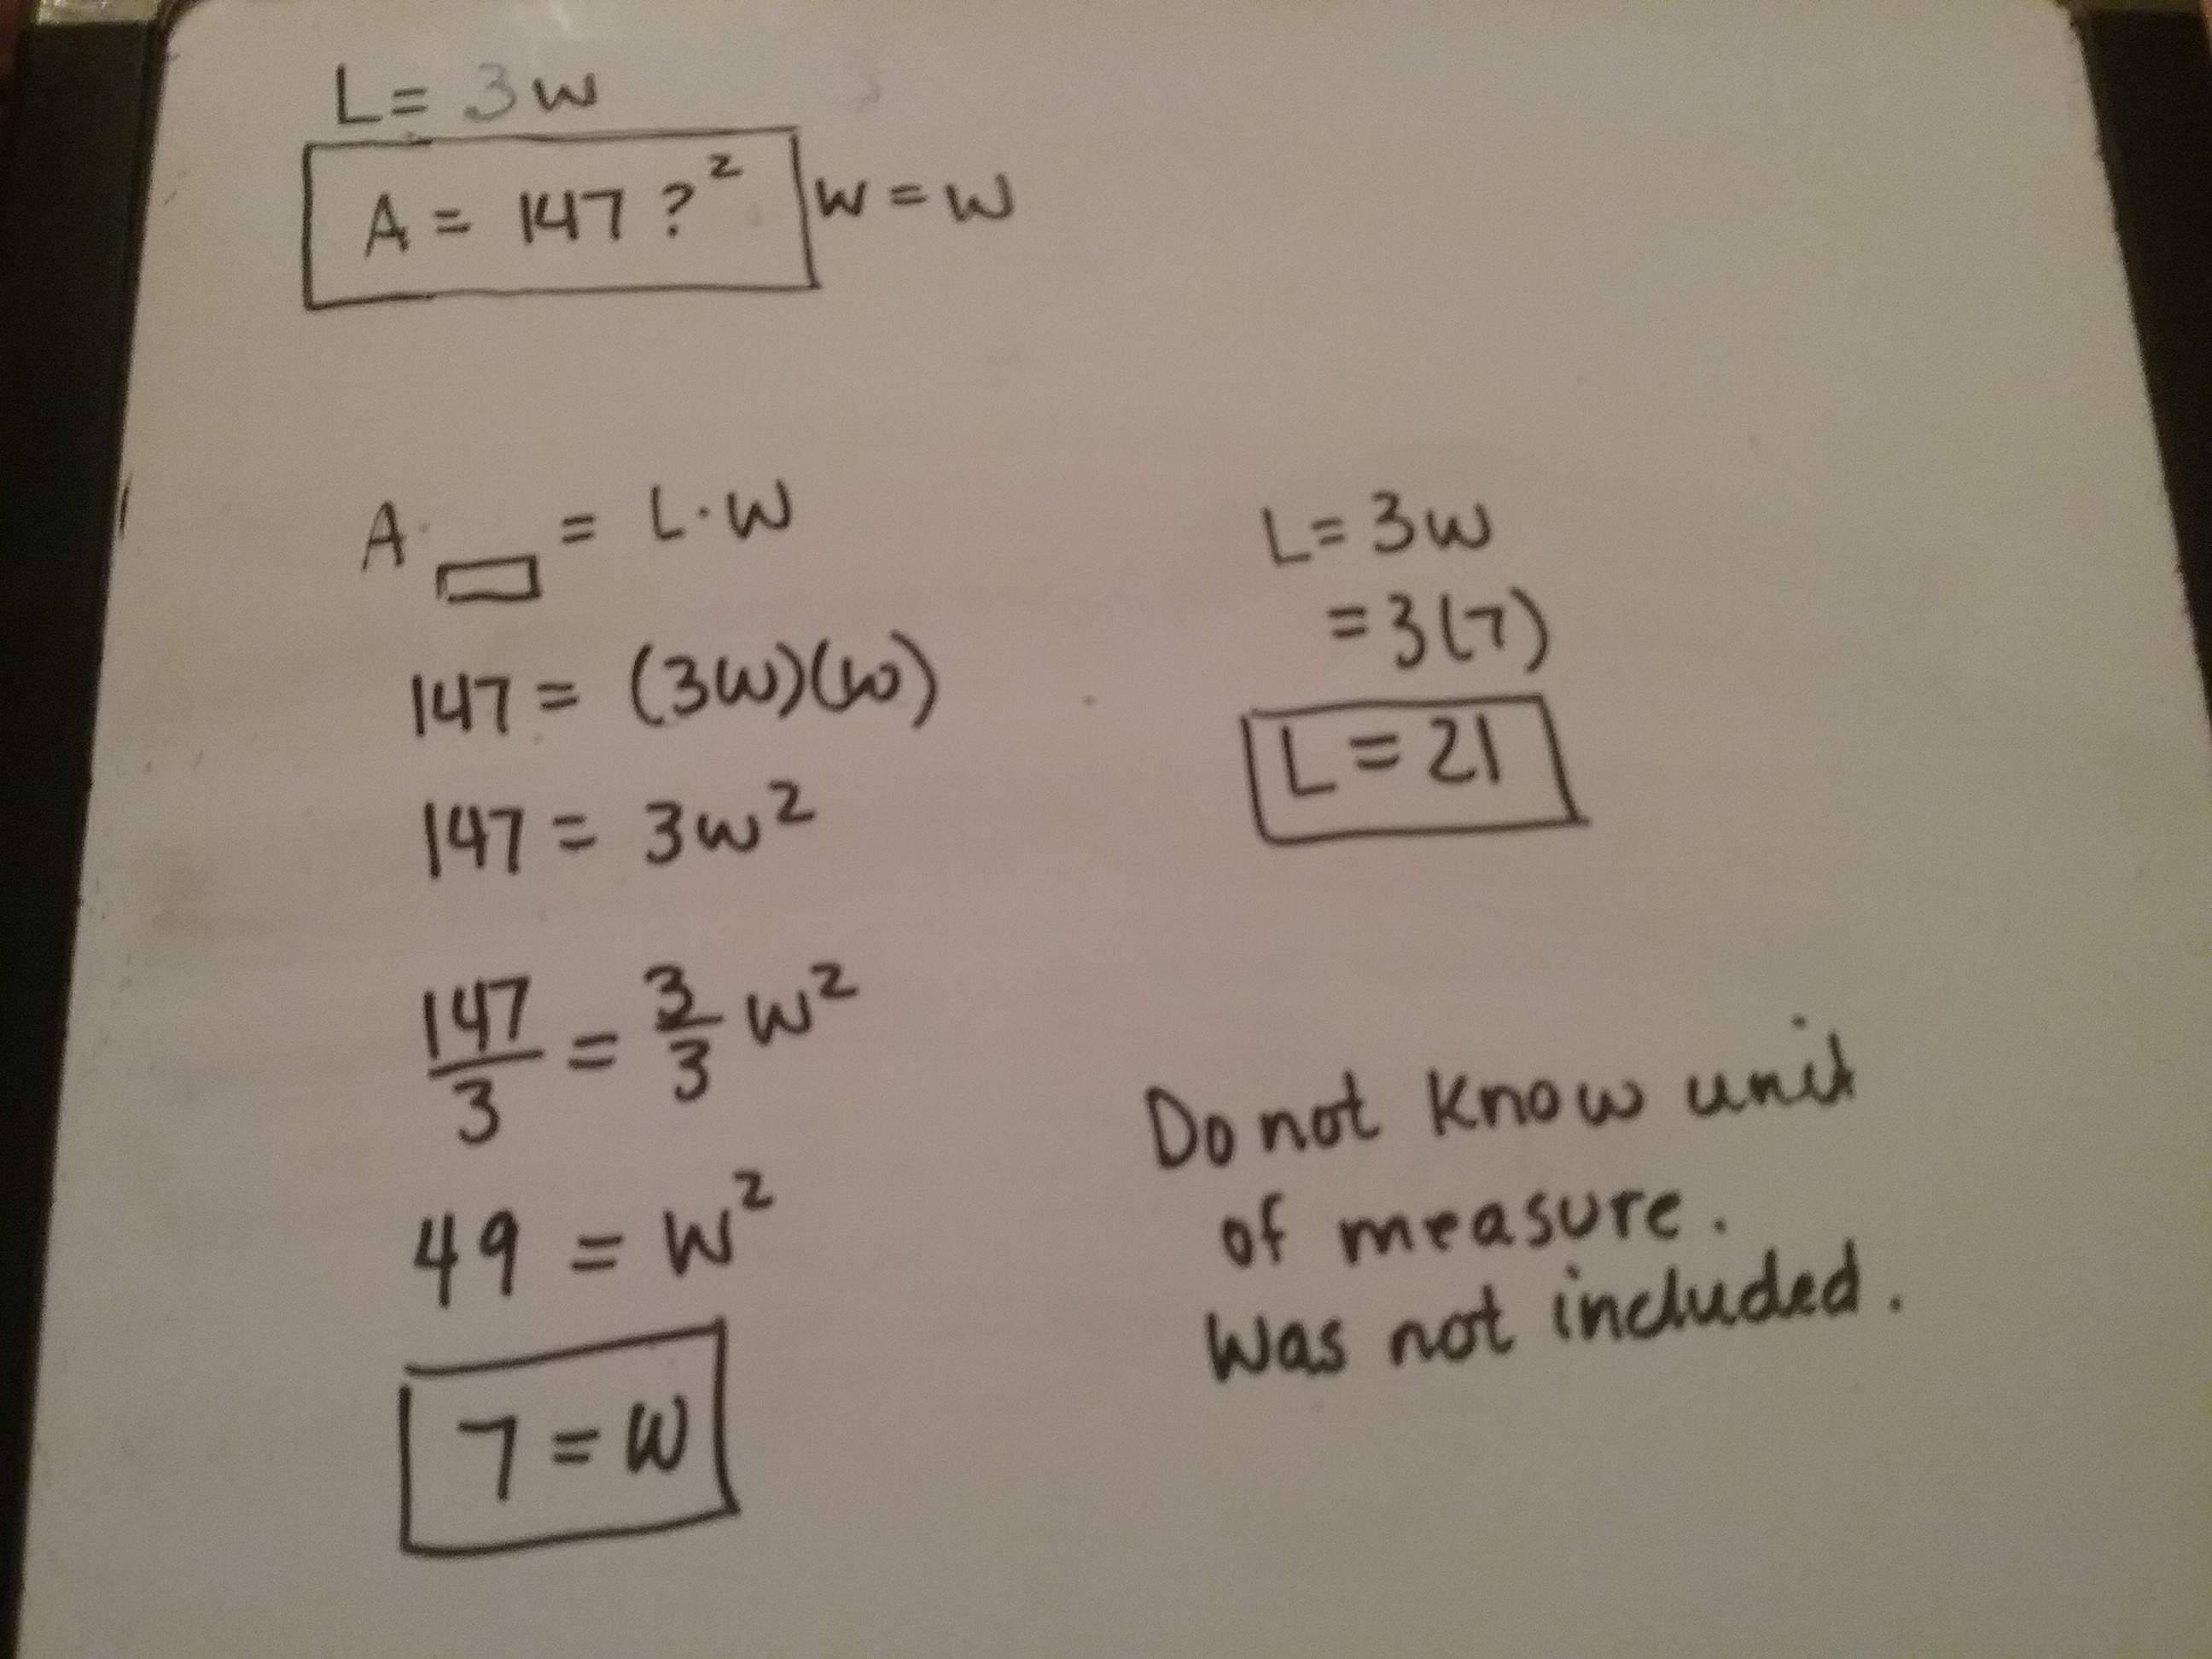 L = 3w
A = 147 ?²
w = w
A▭ = L·W
147 = (3w)(w)
147 = 3w²
147/3 = 3/3 w²
49 = w²
7 = w
L = 3w
= 3(7)
L = 21
Do not know unit
of measure.
Was not included.